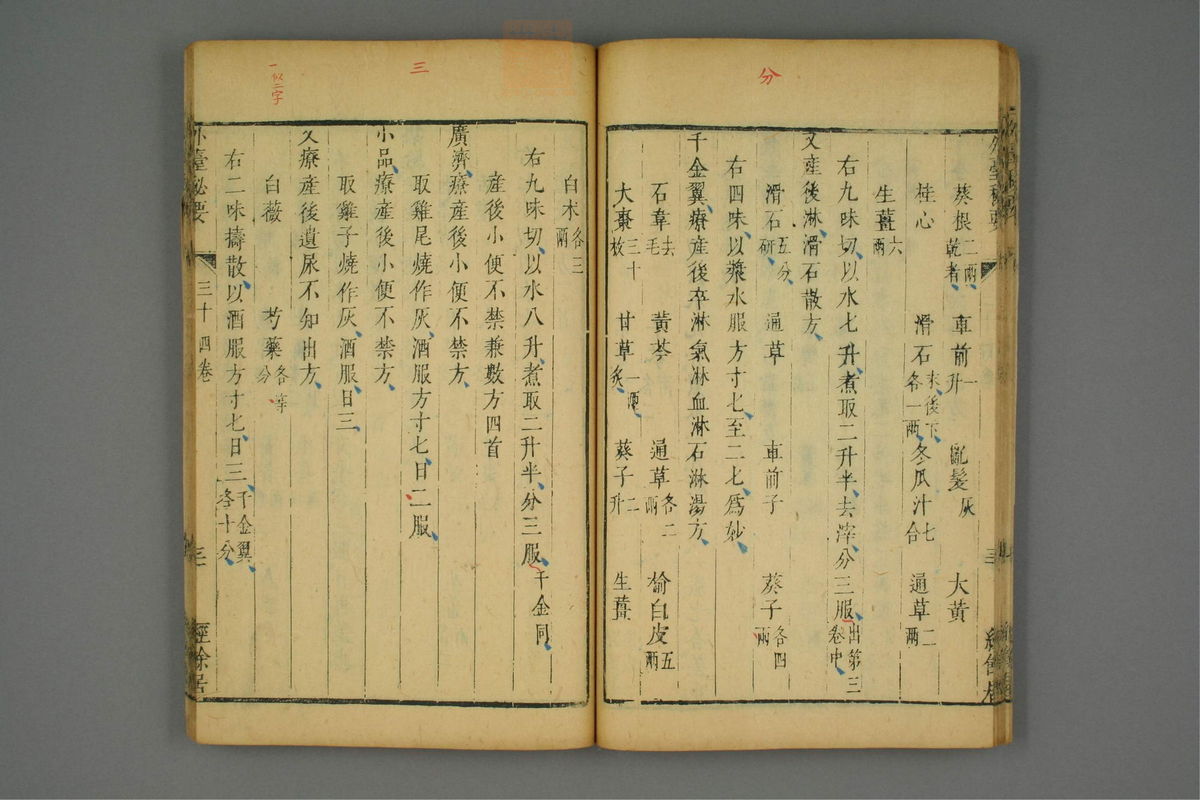 分
葵根二兩乾者 車前一升 亂髮灰 大黃
桂心 滑石末後下各一兩 冬瓜汁七合 通草二兩
生薑六兩
右九味切以水七升煮取二升半去滓分三服出第三卷中
又產後淋滑石散方
滑石五分研 通草 車前子 葵子各四兩
右四味以漿水服方寸七至二七爲妙
千金翼療產後卒淋氣淋血淋石淋湯方
石韋去毛 黃芩 通草各二兩 榆白皮五兩
大棗三十枚 甘草一兩炙 葵子二升 生薑
三
一似二字
白朮各三兩
右九味切以水八升煮取二升半分三服千金同
產後小便不禁兼數方四首
廣濟療產後小便不禁方
取雞尾燒作灰酒服方寸七日二服
小品療產後小便不禁方
取雞子燒作灰酒服日三
又療產後遺尿不知出方
白薇 芍藥各等分
右二味擣散以酒服方寸七日三千金翼各十分
外臺祕要 三十四卷 三 經餘居